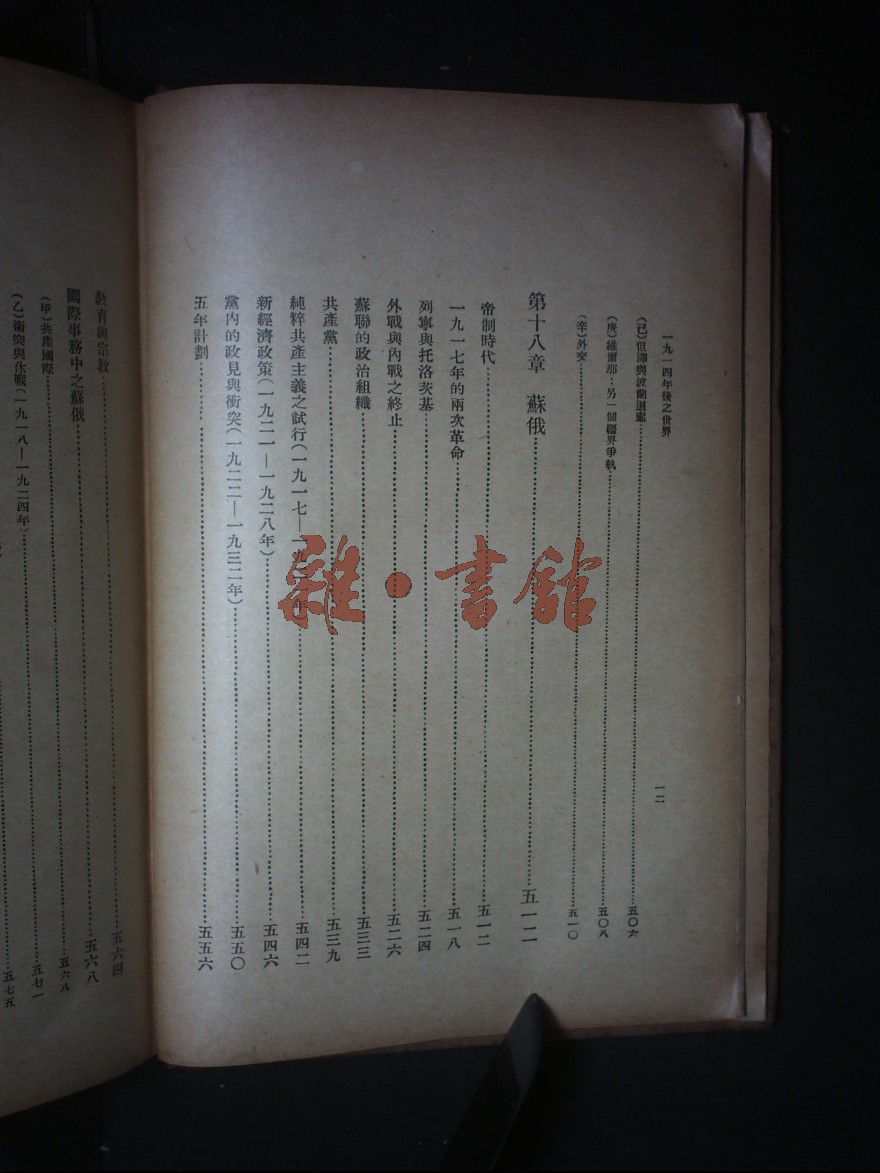 一九一四年後之世界
一二
(己)但澤與波蘭迴廊……五〇六
(庚)維爾那:另一個疆界爭執……五〇八
(辛)外交……五一〇
第十八章 蘇俄……五一二
帝制時代……五一二
一九一七年的兩次革命……五一八
列寧與托洛茨基……五二四
外戰與內戰之終止……五二六
蘇聯的政治組織……五三三
共產黨……五三九
純粹共產主義之試行(一九一七—一九二 年)……五四二
新經濟政策(一九二一—一九二八年)……五四六
黨內的政見與衝突(一九二二—一九三二年)……五五〇
五年計劃……五五六
教育與宗教……五六四
國際事務中之蘇俄……五六八
(甲)共產國際……五六八
(乙)衝突與休戰(一九一八—一九二四年)……五七一
……五七五
雜·書館